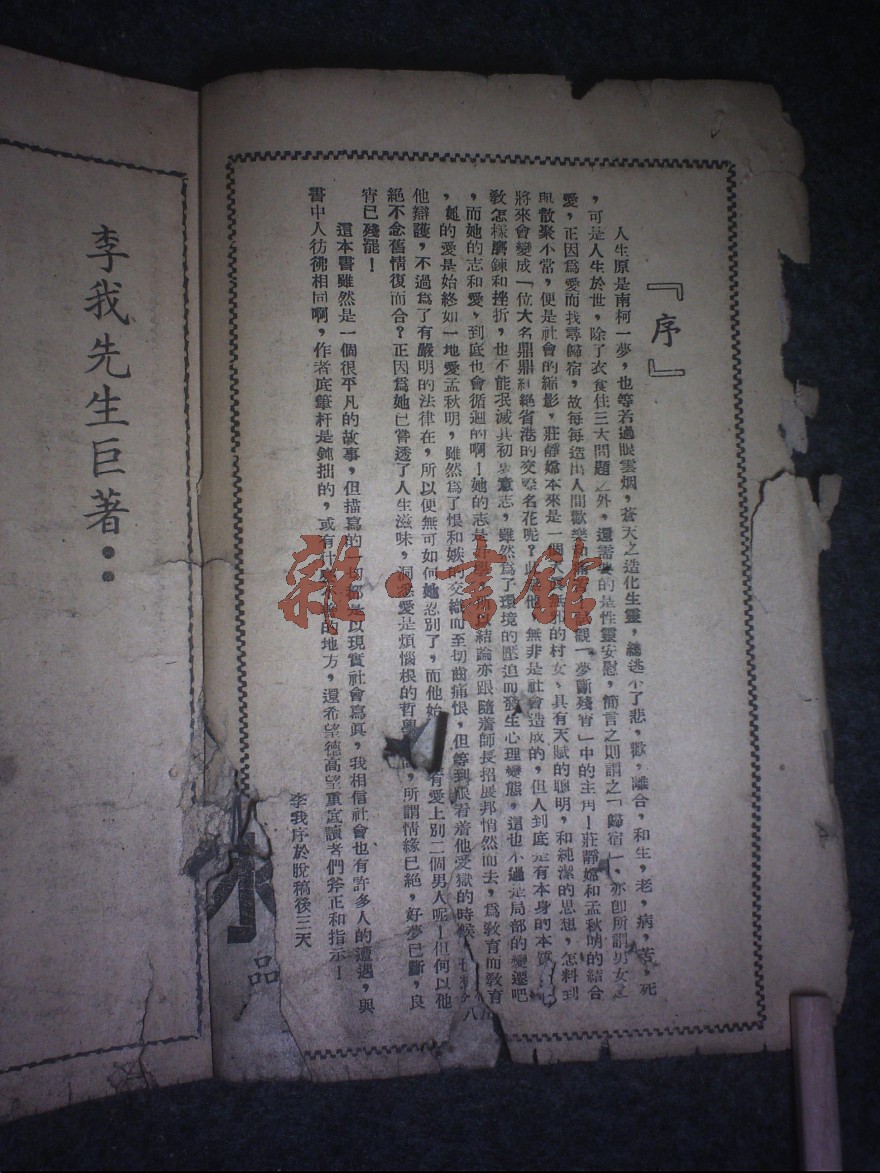 『序』
人生原是南柯一夢，也等若過眼雲烟，蒼天之造化生靈，總逃不了悲，歡，離合，和生，老，病，苦，死
，可是人生於世，除了衣食住三大問題之外，還需要的是性靈安慰，簡言之則謂之「歸宿」，亦即所謂男女之
愛，正因爲愛而找尋歸宿，故每每造出人間歡樂和 觀「夢斷殘宵」中的主角！莊靜嫦和孟秋明的結合
與散聚不常，便是社會的縮影，莊靜嫦本來是一個 的村女，具有天賦的聰明，和純潔的思想，怎料到
將來會變成一位大名鼎鼎 絕省港的交際名花呢？ 他，無非是社會造成的，但人到底是有本身的本質
敎怎樣磨鍊和挫折，也不能泯滅其初衷意志，雖然爲了環境的壓迫而發生心理變態，這也不過是局部的變遷吧
，而她的志和愛，到底也會循迴的啊！她的志是 結論亦跟隨着師長招展邦悄然而去，爲敎育而敎育
，她的愛是始終如一地愛孟秋明，雖然爲了恨和嫉的交織而至切齒痛恨，但等到眼看着他受獄的時候，
他辯護，不過爲了有嚴明的法律在，所以便無可如何她忍別了，而他始 有愛上別二個男人呢！但何以他
絕不念舊情復而合？正因爲她已嘗透了人生滋味，洞悉愛是煩惱根的哲學 ，所謂情緣已絕，好夢已斷，良
宵已殘罷！
這本書雖然是一個很平凡的故事，但描寫的一切都是以現實社會寫眞，我相信社會也有許多人的遭遇，與
書中人彷彿相同啊，作者底筆杆是鈍拙的，或有什 的地方，還希望德高望重底讀者們斧正和指示！
李我序於脫稿後三天
李我先生巨著：
品
雜·書館